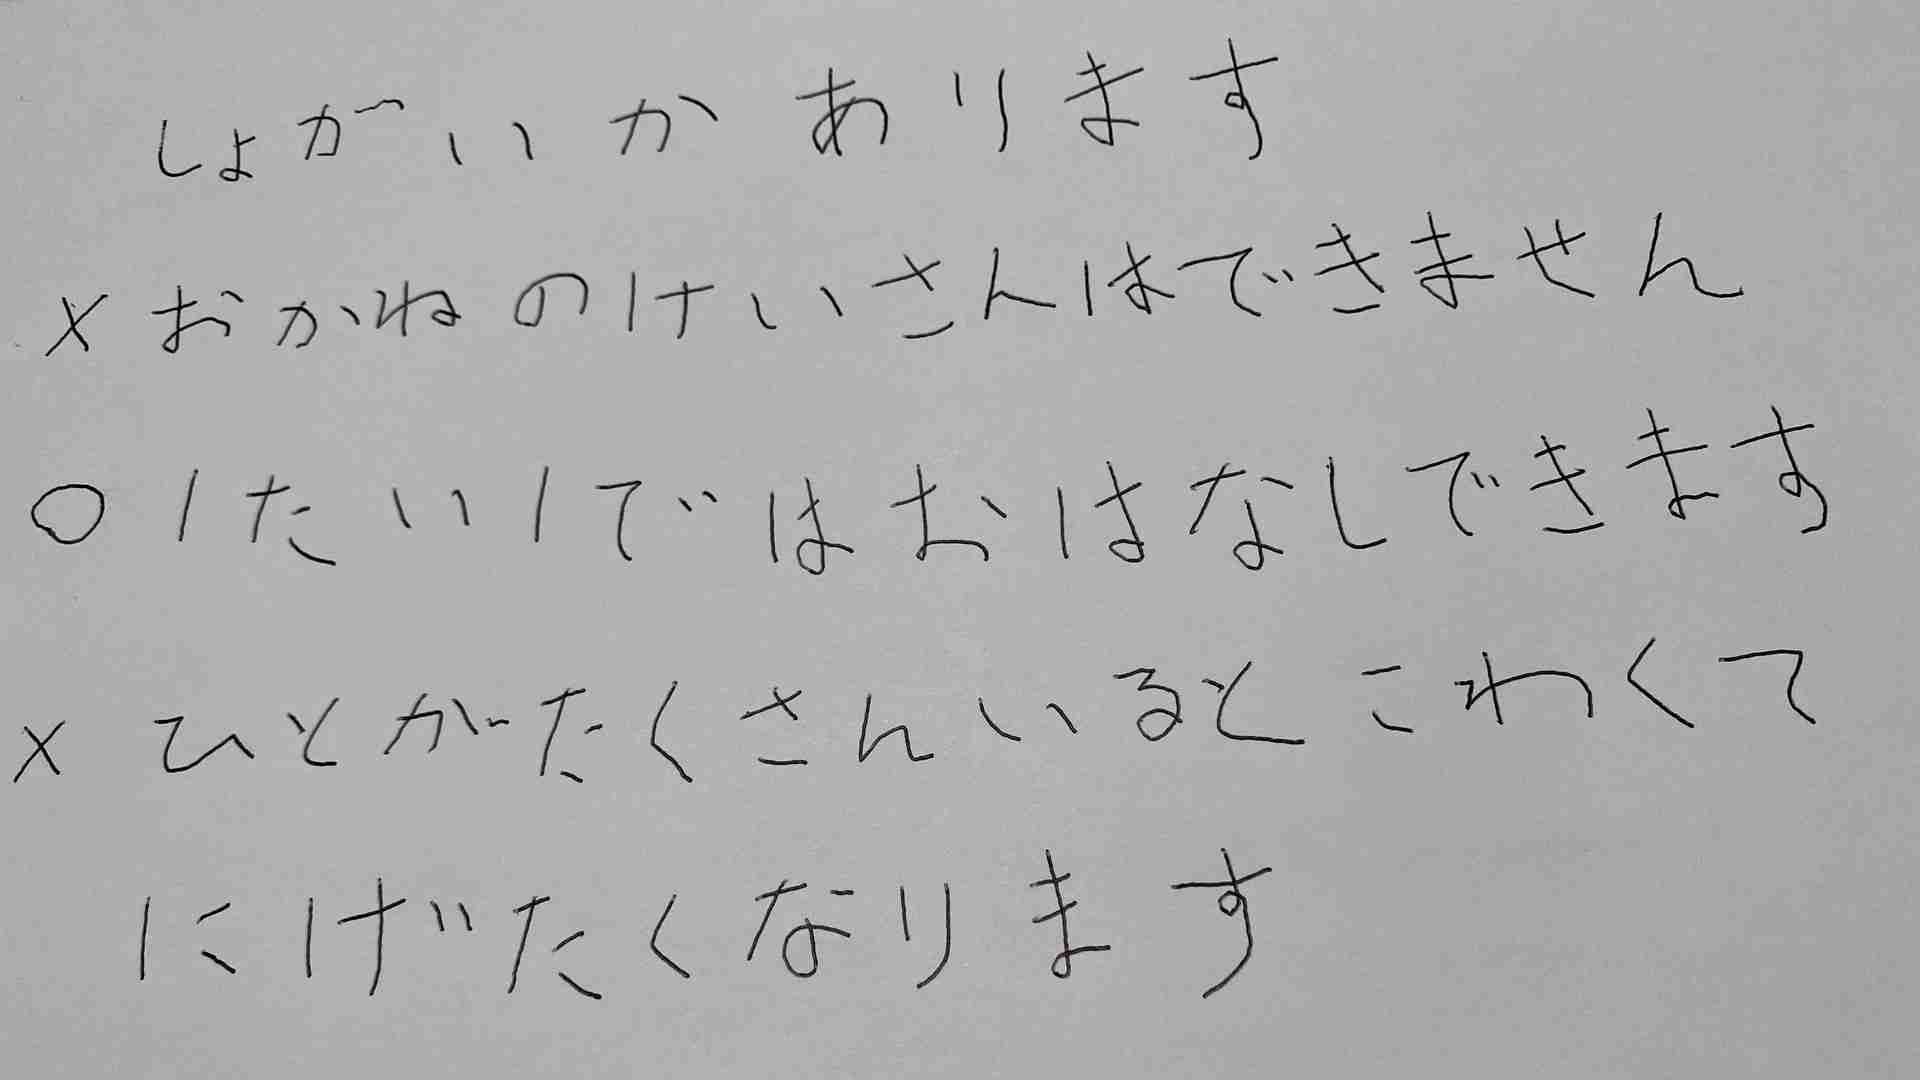 しょがいかあります
×おかねのけいさんはできません
○1たい1ではおはなしできます
×ひとがたくさんいるとこわくて
にげたくなります